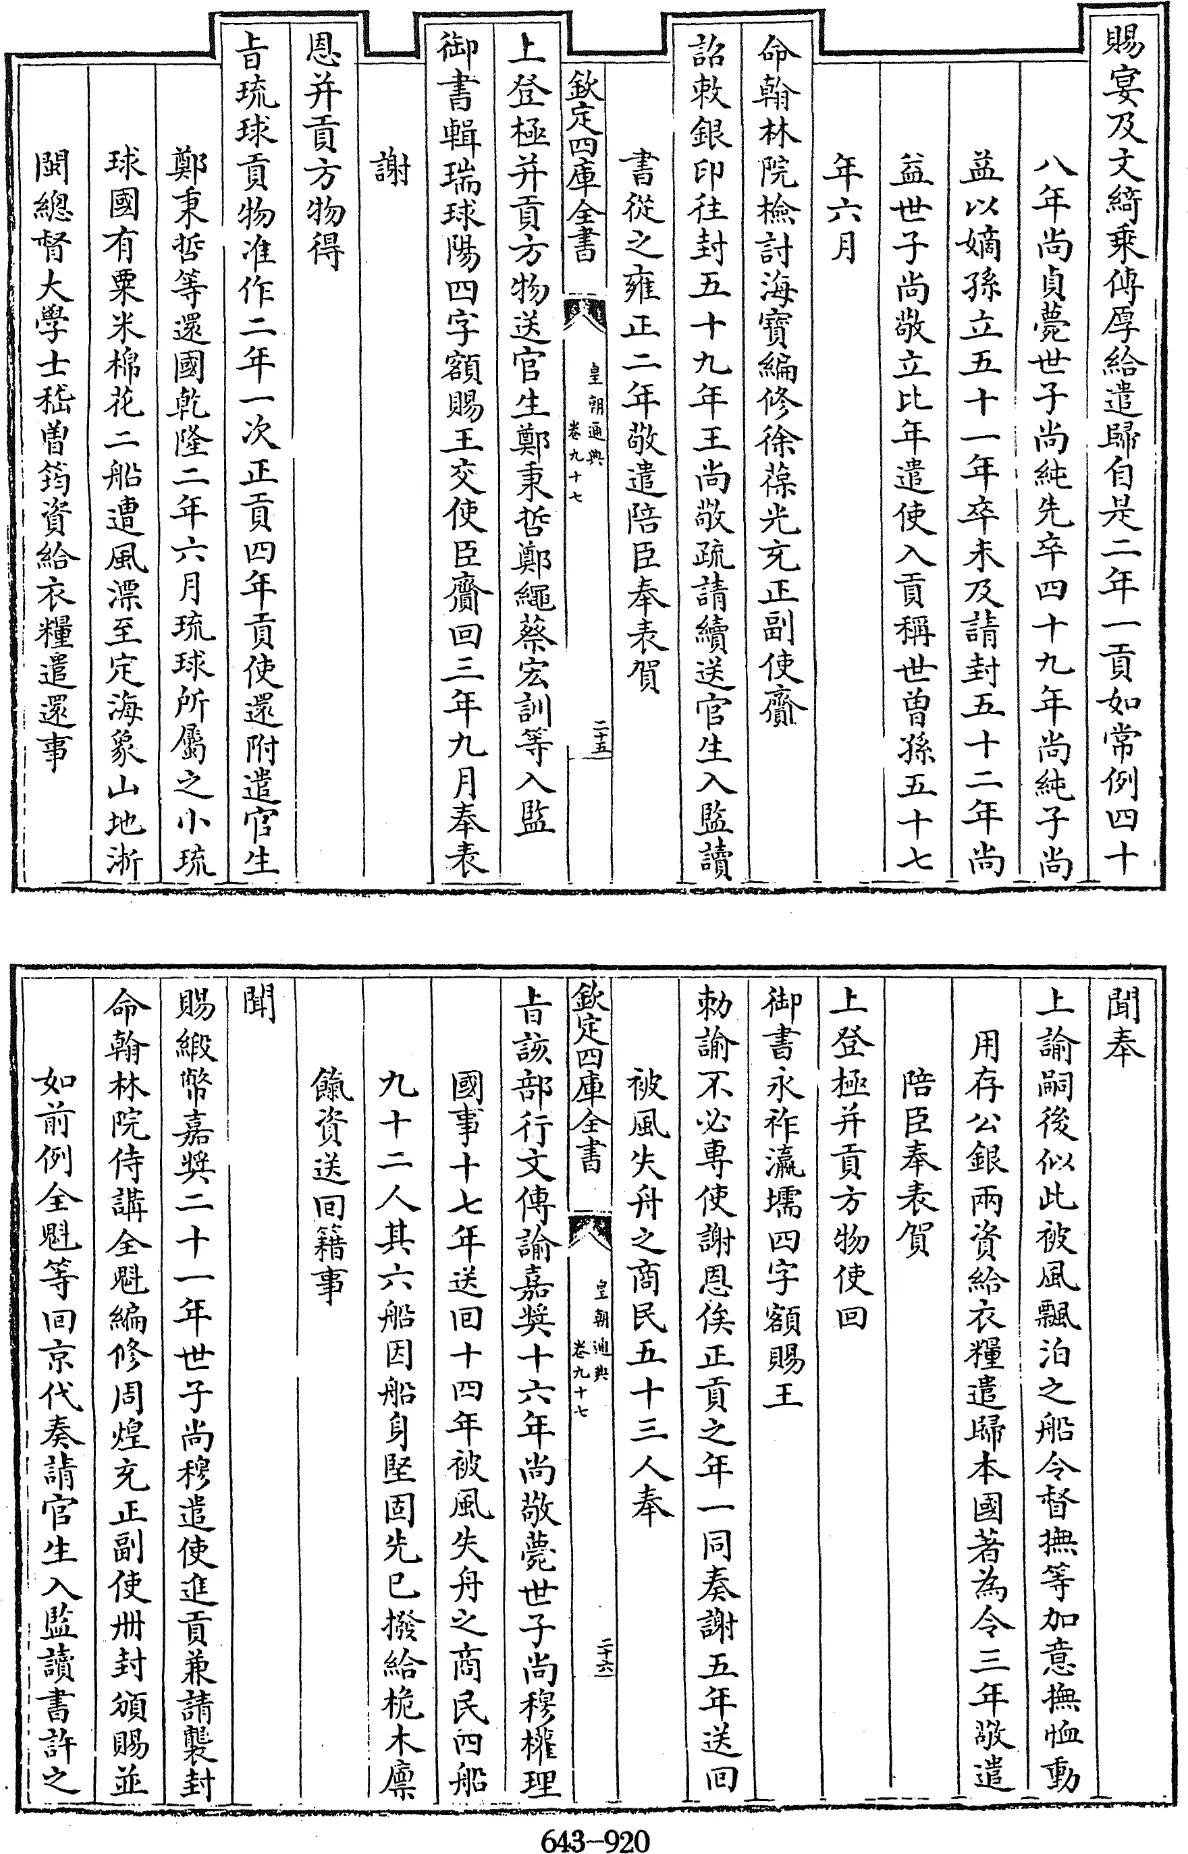 賜宴及文綺乘傳厚給遣歸自是二年一貢如常例四十
八年尚貞薨世子尚純先卒四十九年尚純子尚
益以嫡孫立五十一年卒未及請封五十二年尚
益世子尚敬立比年遣使入貢稱世曾孫五十七
年六月
命翰林院檢討海寶編修徐葆光充正副使齎
詔敕銀印往封五十九年王尚敬疏請續送官生入監讀
書從之雍正二年敬遣陪臣奉表賀
欽定四庫全書
皇朝通典
卷九十七
二十五
上登極并貢方物送官生鄭秉哲鄭繩蔡宏訓等入監
御書輯瑞球陽四字額賜王交使臣齎回三年九月奉表
謝
恩并貢方物得
旨琉球貢物准作二年一次正貢四年貢使還附遣官生
鄭秉哲等還國乾隆二年六月琉球所屬之小琉
球國有粟米棉花二船遭風漂至定海象山地浙
閩總督大學士嵇曾筠資給衣糧遣還事
聞奉
上諭嗣後似此被風飄泊之船令督撫等加意撫恤動
用存公銀兩資給衣糧遣歸本國著為令三年敬遣
陪臣奉表賀
上登極并貢方物使回
御書永祚瀛壖四字額賜王
勅諭不必專使謝恩俟正貢之年一同奏謝五年送回
被風失舟之商民五十三人奉
欽定四庫全書
皇朝通典
卷九十七
二十六
旨該部行文傳諭嘉獎十六年尚敬薨世子尚穆權理
國事十七年送回十四年被風失舟之商民四船
九十二人其六船因船身堅固先已撥給桅木廩
餼資送回籍事
聞
賜緞幣嘉獎二十一年世子尚穆遣使進貢兼請襲封
命翰林院侍講全魁編修周煌充正副使冊封頒賜並
如前例全魁等回京代奏請官生入監讀書許之
643-920